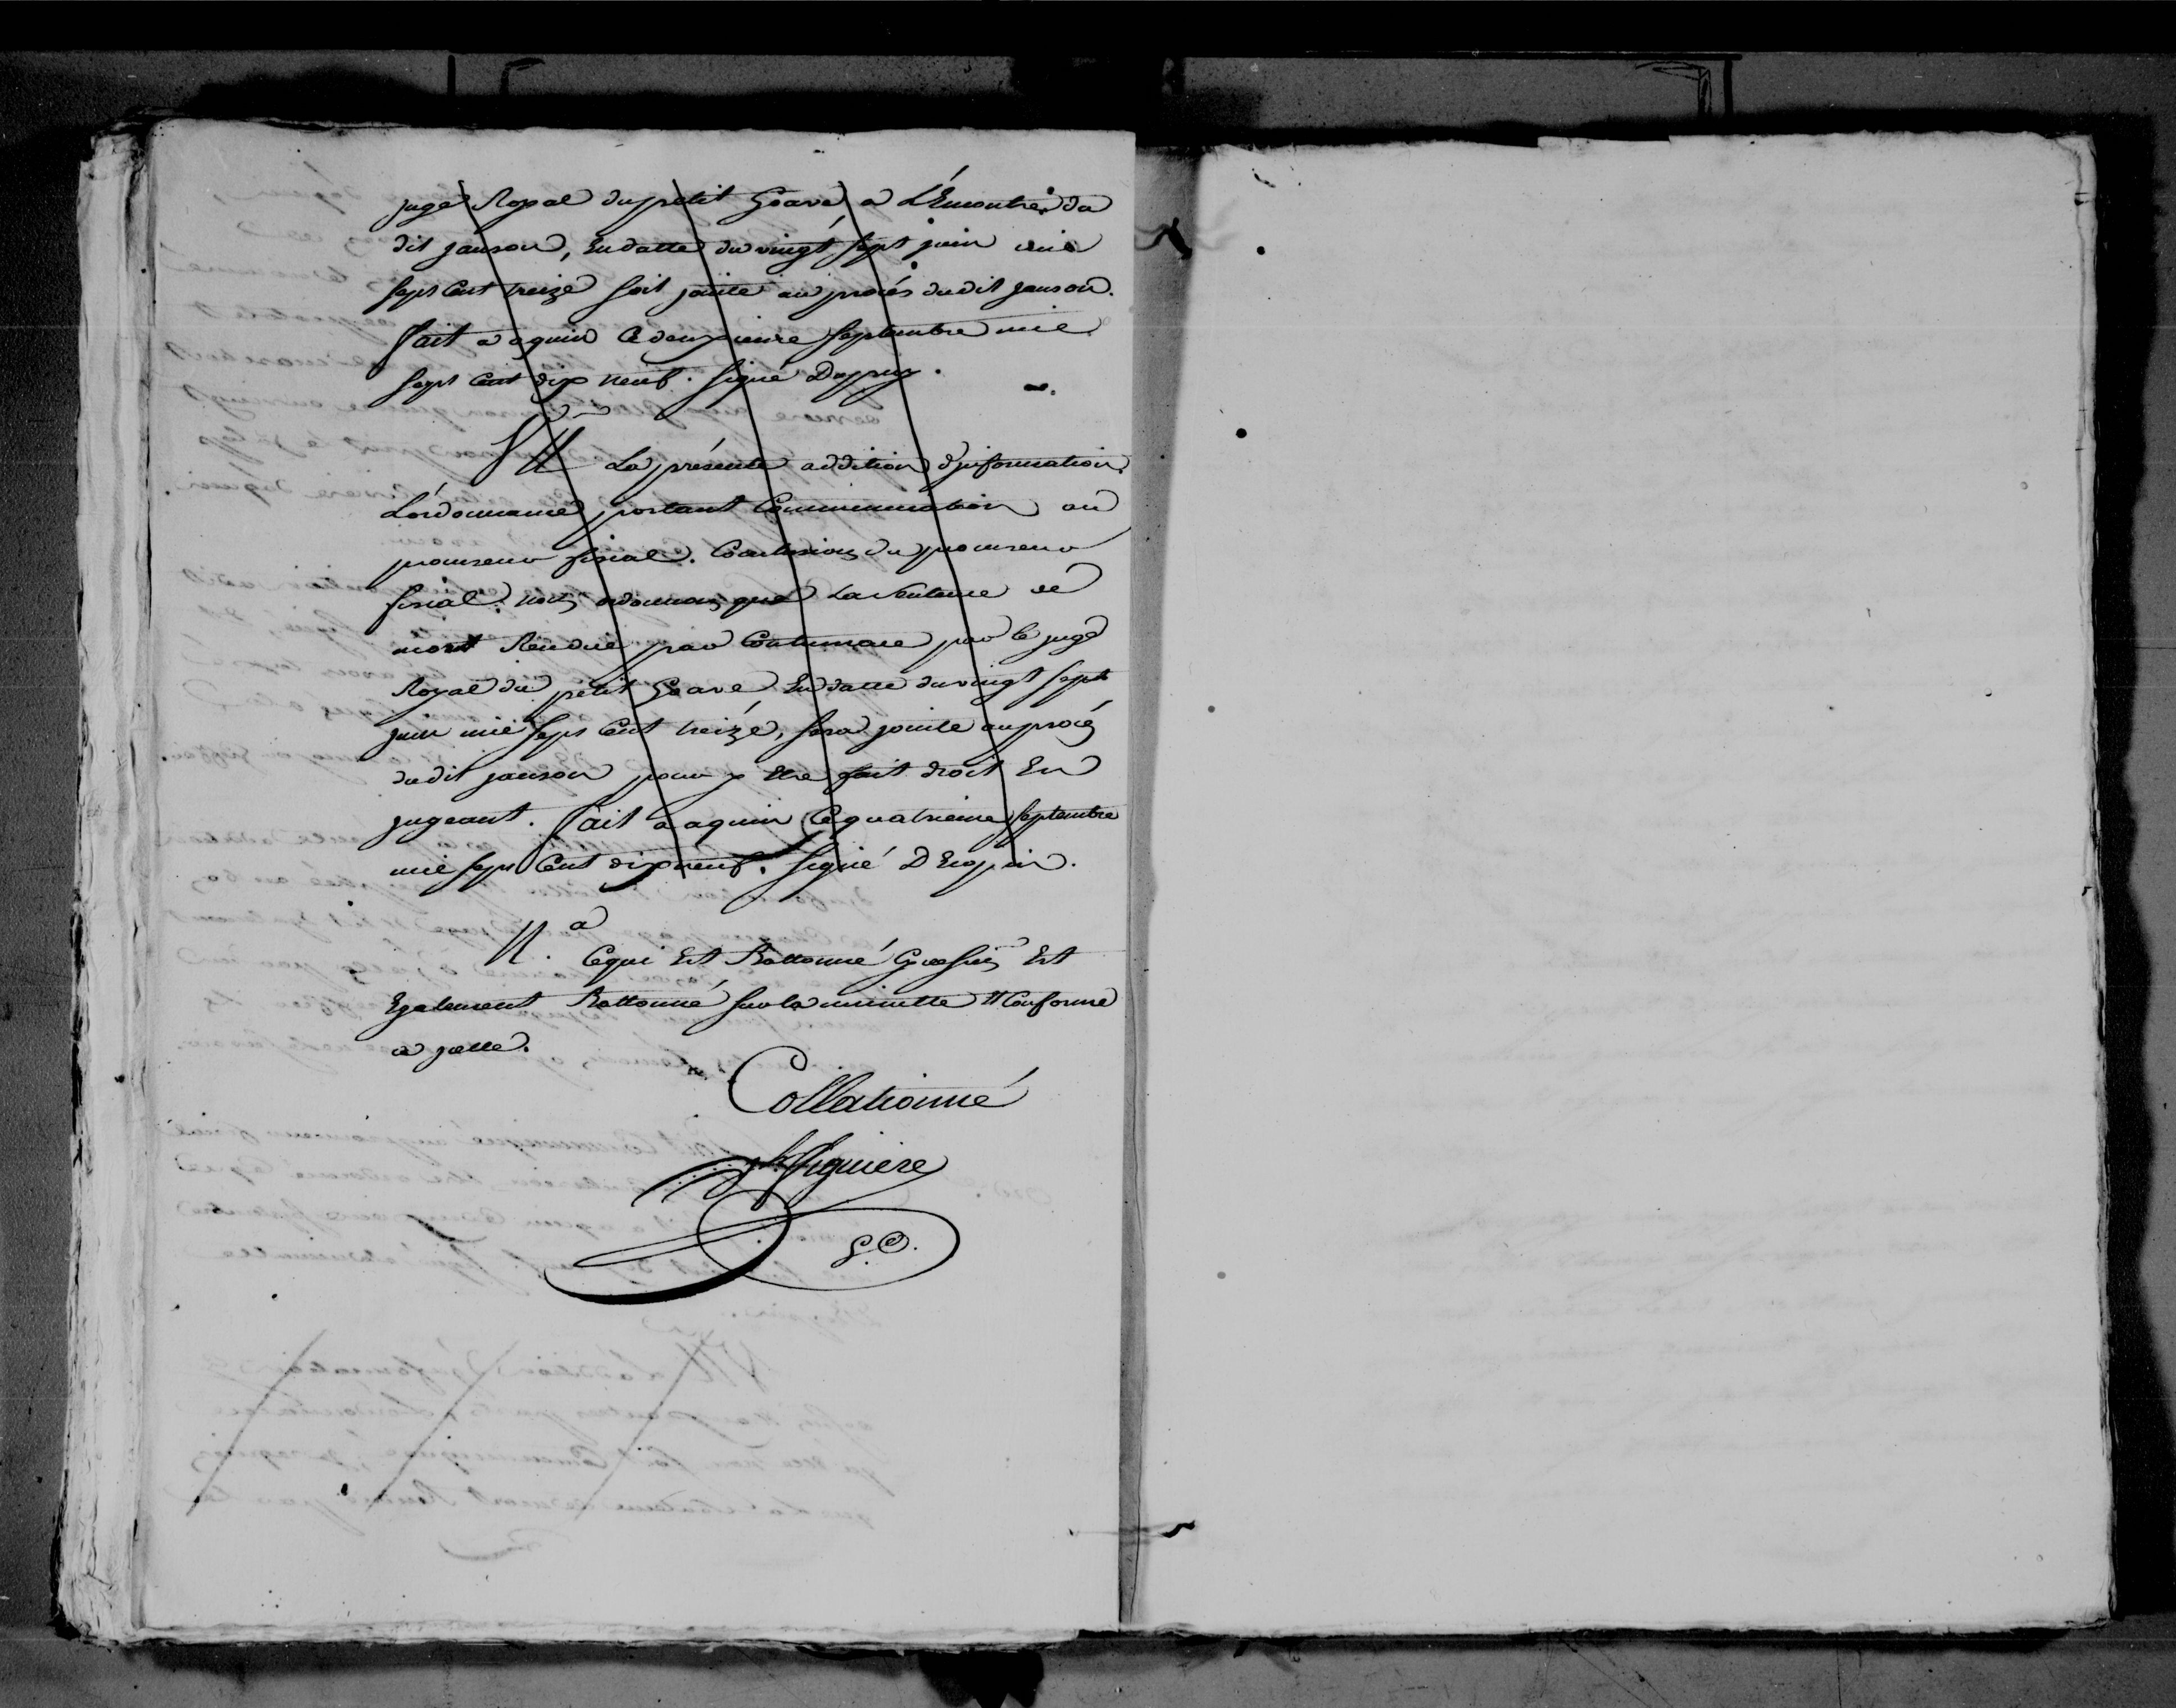 juge Royal du petit Goave a L'Encontre du
dit janson, En datte du vingt sept juin mil
sept Cent treize soit jointe au procés du dit janson.
fait a aquin Ce deuxieme septembre mil
sept Cent dix neuf. signé Dupuy.
VU La présente addition d'information.
L'ordonnance portant Communication au
procureur fiscal. Conclusions du procureur
fiscal. nous ordonnons que La sentence de
mort Rendue par Contumace par le juge
Royal du petit Goave En datte du vingt sept
juin mil sept Cent treize, sera jointe au procés
du dit janson pour y Etre fait droit En
jugeant. fait a aquin Ce quatrieme septembre
mil sept Cent dix neuf. signé
N.a Ce qui Est Battonné Cy dessus Est
Egalement Battonné sur la minutte Et Conforme
a jcelle.
Collationné